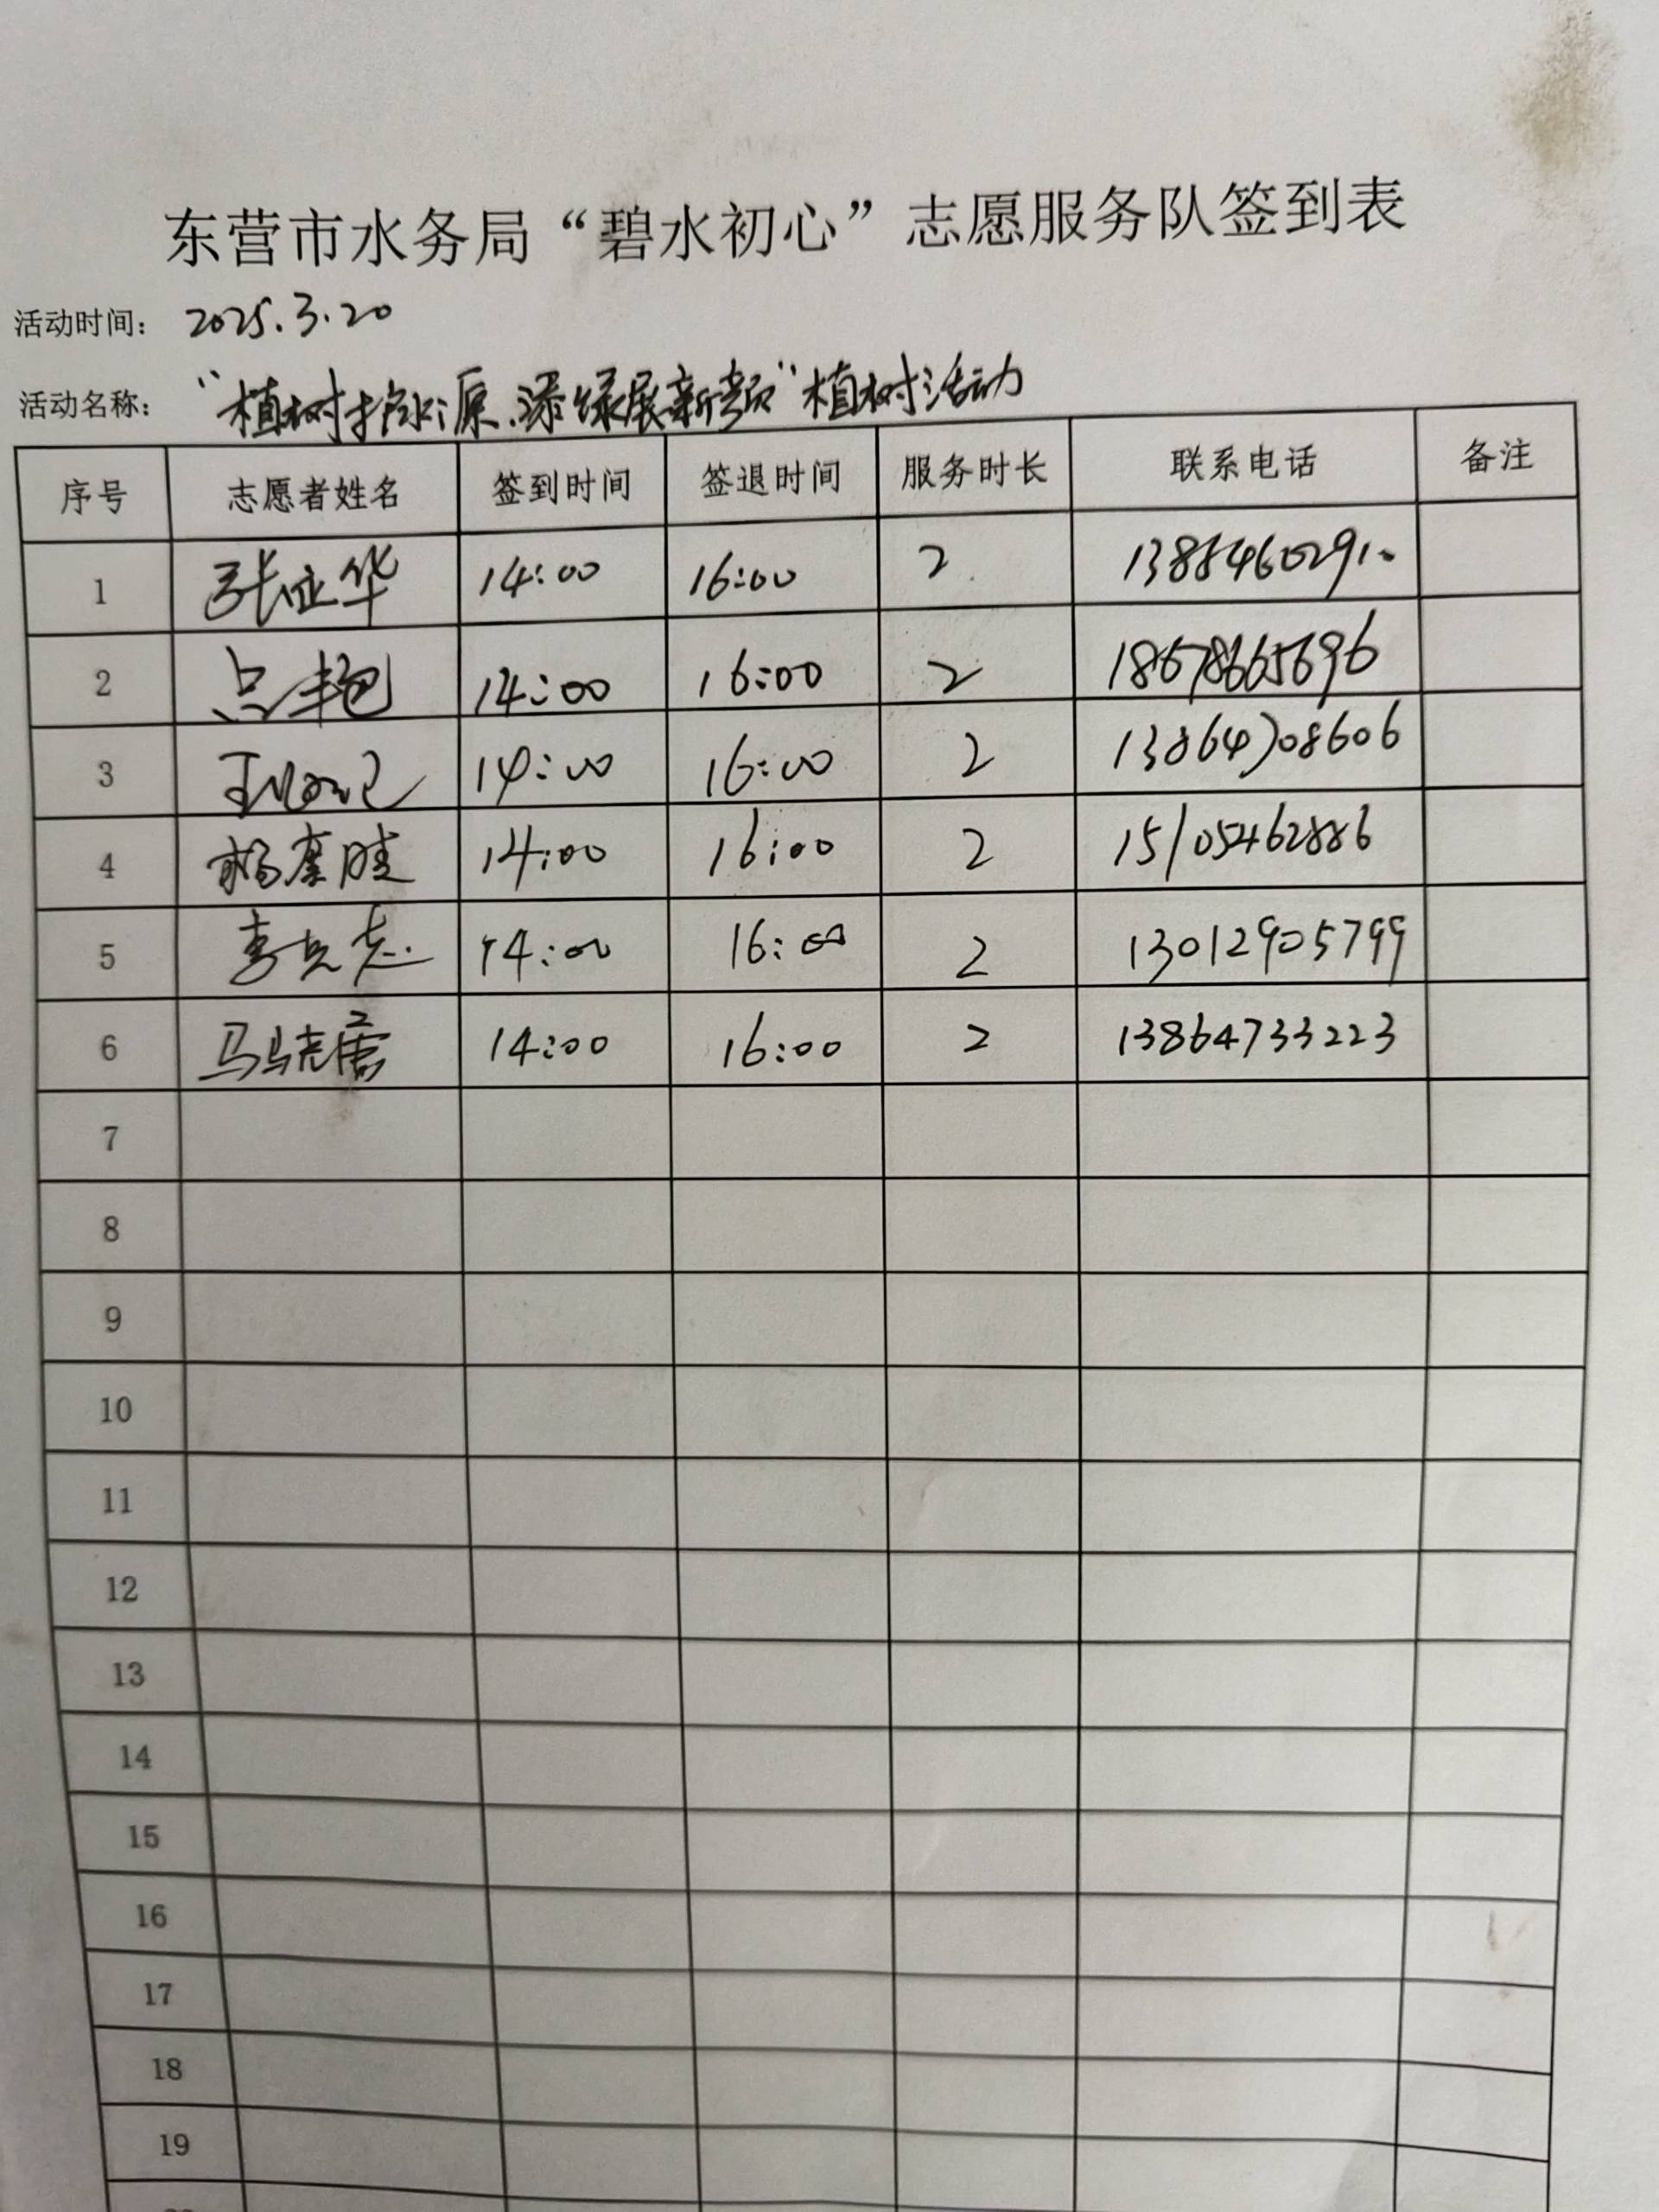 东营市水务局“碧水初心”志愿服务队签到表
活动时间：2025.3.20
活动名称：“植树护水源.添绿展新颜”植树活动
序号 志愿者姓名 签到时间 签退时间 服务时长 联系电话 备注
1 张亚华 14:00 16:00 2 13884602910
2 14:00 16:00 2 18678665696
3 14:00 16:00 2 13864708606
4 14:00 16:00 2 15105462886
5 李兵志 14:00 16:00 2 13012905799
6 14:00 16:00 2 13864733223
7
8
9
10
11
12
13
14
15
16
17
18
19